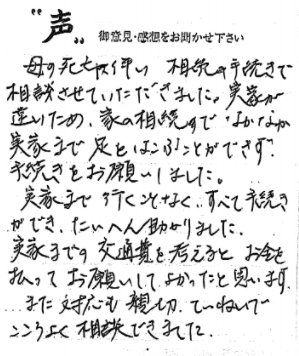 "声" 御意見・感想をお聞かせ下さい
母の死亡に伴い 相続の手続きで
相談させていただきました。実家が
遠いため、家の相続の でなかなか
実家まで 足をはこぶことができず
手続きをお願いしました。
実家まで行くことなく、すべて手続き
ができ、たいへん助かりました。
実家までの 交通費を考えると お金を
払って お願いして よかったと思います。
また 対応も 親切、ていねいで
こころよく 相談できました。